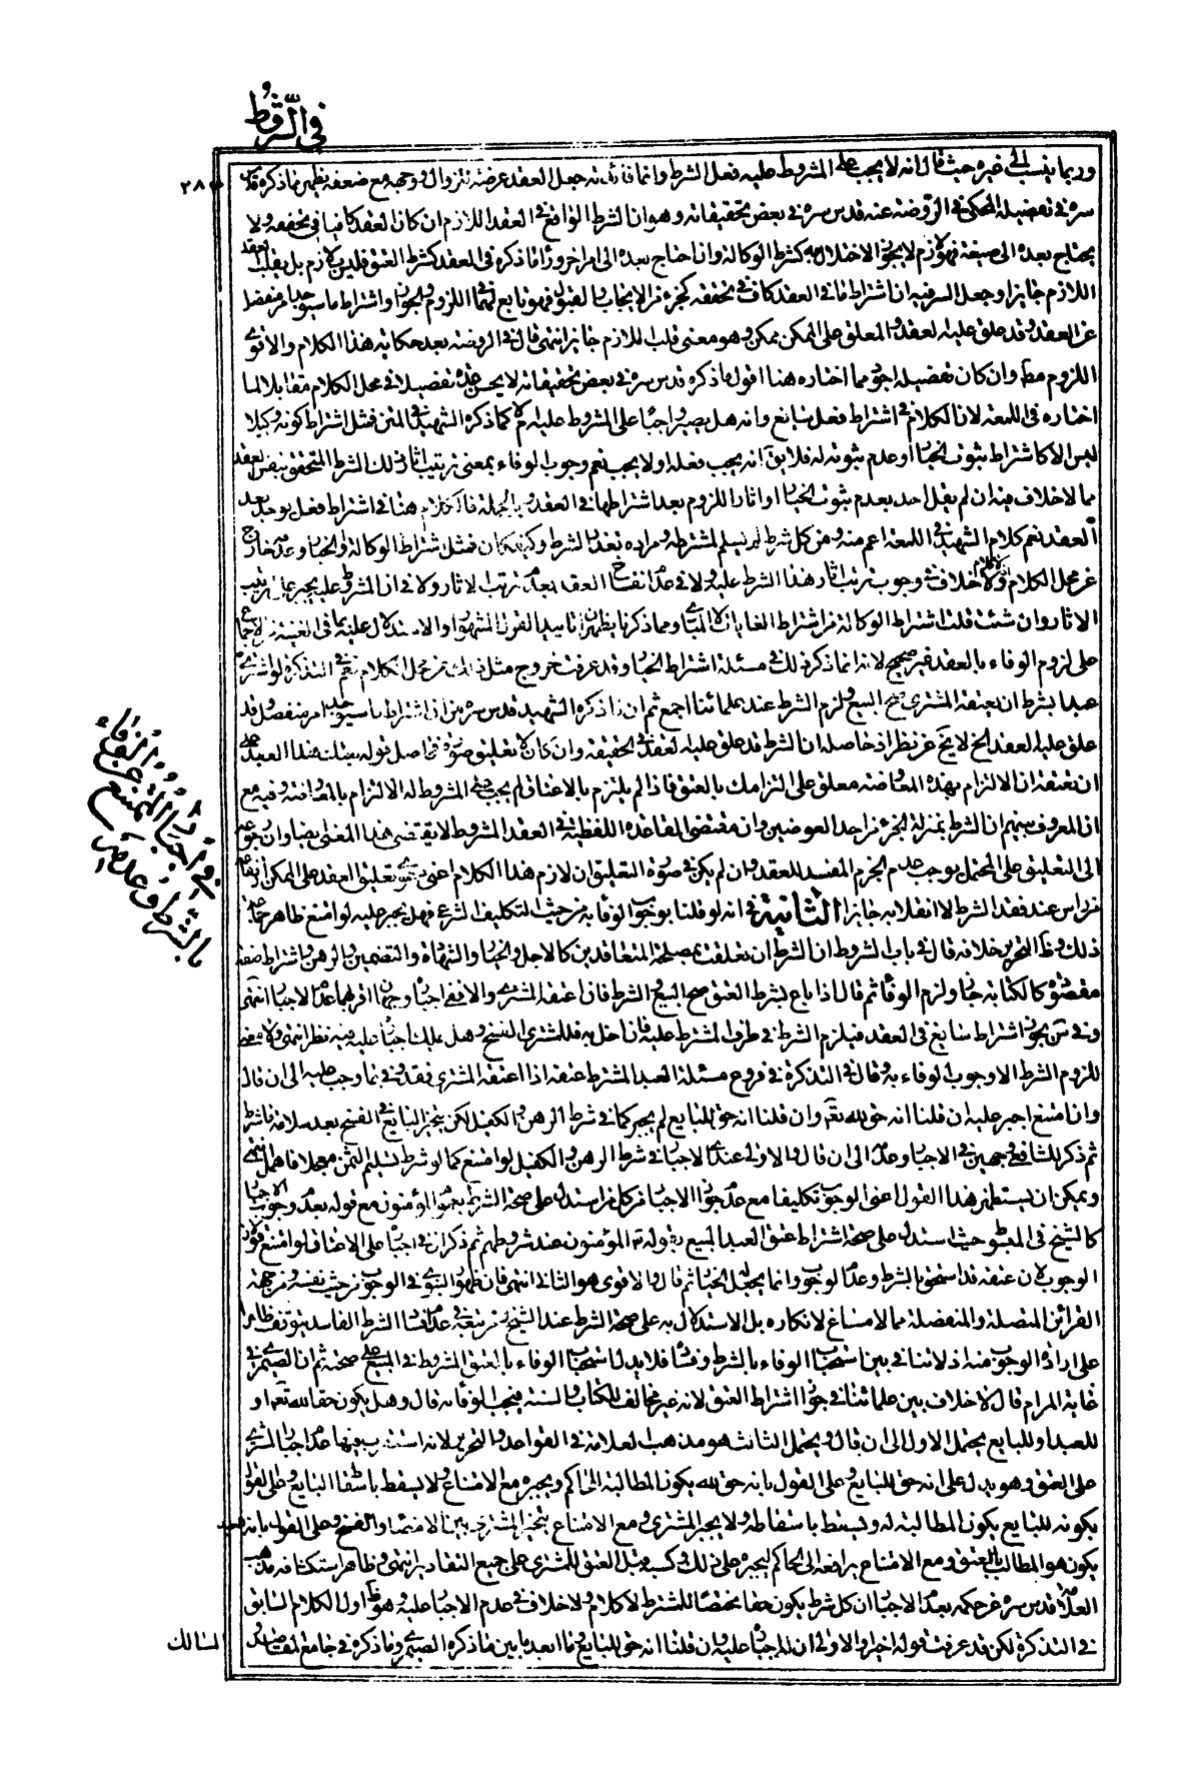 في الشروط
٢٨٤
وربما ينسب الى غيره حيث قال انه لا يجب على المشروط عليه فعل الشرط وانما فائدته جعل العقد عرضة للزوال ووجهه مع ضعفه يظهر مما ذكره قدس
سره في تفصيله المحكى في الروضة عنه قدس سره في بعض تحقيقاته وهو ان الشرط الواقع في العقد اللازم ان كان العقد كافيا في تحققه ولا
يحتاج بعده الى صيغة فهو لازم لا يجوز الاخلال به كشرط الوكالة وان احتاج بعده الى امر اخر وراء ذكره في العقد كشرط العتق فليس بلازم بل يقلب العقد
اللازم جايزا وجعل السر فيه ان اشتراط ما في العقد كاف في تحققه كجزء من الايجاب والقبول فهو تابع لهما في اللزوم والجواز واشتراط ما سيوجد امر منفصل
عن العقد وقد علق عليه العقد والمعلق على الممكن ممكن وهو معنى قلب اللازم جايزا انتهى قال في الروضة بعد حكاية هذا الكلام والاقوى
اللزوم مط وان كان تفصيله اجود مما اختاره هنا اقول ما ذكره قدس سره في بعض تحقيقاته لا يحسن عده تفصيلا في محل الكلام مقابلا لما
اختاره في اللمعة لان الكلام في اشتراط فعل سايغ وانه هل يصير واجبا على المشروط عليه ام لا كما ذكره الشهيد في المتن فمثل اشتراط كونه وكيلا
ليس الا كاشتراط ثبوت الخيار او عدم ثبوته له فلا يق انه يجب فعله او لا يجب نعم وجوب الوفاء بمعنى ترتيب اثار ذلك الشرط المتحقق بنفس العقد
مما لا خلاف فيه اذ لم يقل احد بعدم ثبوت الخيار او اثار اللزوم بعد اشتراطها في العقد وبالجملة فالكلام هنا في اشتراط فعل يوجد بعد
العقد نعم كلام الشهيد في اللمعة اعم منه ومن كل شرط لم يسلم لمشترطه ومراده تعذر الشرط وكيف كان فمثل اشتراط الوكالة والخيار وعدمه خارج
عن محل الكلام اذ لا كلام ولا خلاف في وجوب ترتب اثار هذا الشرط عليه ولا في عدم انفساخ العقد بعدم ترتيب الاثار ولا في ان المشروط عليه يجبر على ترتيب
الاثار وان شئت قلت اشتراط الوكالة من اشتراط الغايات لا المبادي ومما ذكرنا يظهر ان تاييد القول المشهور او الاستدلال عليه بما في الغنية من الاجماع
على لزوم الوفاء بالعقد غير صحيح لانه انما ذكر ذلك في مسئلة اشتراط الخيار وقد عرفت خروج مثل ذلك عن محل الكلام نعم في التذكرة لو اشترى
عبدا بشرط ان يعتقه المشتري صح البيع ولزم الشرط عند علمائنا اجمع ثم ان ما ذكره الشهيد قدس سره من ان اشتراط ما سيوجد امر منفصل وقد
علق عليه العقد الخ لا يخ عن نظر اذ حاصله ان الشرط قد علق عليه العقد في الحقيقة وان كان لا تعليق صورة فحاصل قوله بعتك هذا العبد على
ان تعتقه ان الالتزام بهذه المعاوضة معلق على التزامك بالعتق فاذا لم يلتزم بالاعتاق لم يجب على المشروط له الالتزام بالمعاوضة وفيه مع
ان المعروف بينهم ان الشرط بمنزلة الجزء من احد العوضين وان مقتضى القاعدة اللفظية في العقد المشروط لا يقتضي هذا المعنى ايضا وان رجوعه
الى التعليق على المحتمل يوجب عدم الجزم المفسد للعقد وان لم يكن في صورة التعليق ان لازم هذا الكلام اعنى دعوى تعليق العقد على الممكن ارتفاعه
من راس عند فقد الشرط لا انقلابه جايزا الثانية في انه لو قلنا بوجوب الوفاء به من حيث التكليف الشرعي فهل يجبر عليه لو امتنع ظاهر جماعة
ذلك وظ التحرير خلافه قال في باب الشروط ان الشرط ان تعلقت بمصلحة المتعاقدين كالاجل والخيار والشهادة والتضمين والرهن واشتراط صفة
مقصودة كالكتابة جاز ولزم الوفاء ثم قال اذا باع بشرط العتق صح البيع والشرط فان اعتقه المشتري والا ففي اجباره وجهان اقربهما عدم الاجبار انتهى
وفي س يجوز اشتراط سايغ في العقد فيلزم الشرط في طرف المشترط عليه فان اخل به فللمشتري الفسخ وهل يملك اجباره عليه فيه نظر انتهى ولا معنى
للزوم الشرط الا وجوب الوفاء به وقال في التذكرة في فروع مسئلة العبد المشترط عتقه اذا اعتقه المشتري فقد وفى بما وجب عليه الى ان قال
وان امتنع اجبر عليه ان قلنا انه حق لله تعم وان قلنا انه حق للبايع لم يجبر كما في شرط الرهن والكفيل لكن يتخير البايع في الفسخ بعدم سلامة ما شرط
ثم ذكر للشافعي وجهين في الاجبار وعدمه الى ان قال والاولى عندى الاجبار في شرط الرهن والكفيل لو امتنع كما لو شرط تسليم الثمن معجلا فاهمل انتهى
ويمكن ان يستظهر هذا القول اعنى الوجوب تكليفا مع عدم جواز الاجبار من كل من استدل على صحة الشرط بعموم المؤمنون مع قوله بعدم وجوب الاجبار
كالشيخ في المبسوط حيث استدل على صحة اشتراط عتق العبد المبيع بقوله ص المؤمنون عند شروطهم ثم ذكر ان في اجباره على الاعتاق لو امتنع قولان
الوجوب لان عتقه قد استحق بالشرط وعدم الوجوب وانما يجعل له الخيار ثم قال والاقوى هو الثانى انتهى فان ظهور النبوي في الوجوب من حيث نفسه ومن جهة
القرائن المتصلة والمنفصلة مما لا مساغ لانكاره بل الاستدلال به على صحة الشرط عند الشيخ ومن تبعه في عدم افساد الشرط الفاسد يتوقف ظاهرا
على ارادة الوجوب منه اذ لا تنافي بين استحباب الوفاء بالشرط وفساده فلا يدل استحباب الوفاء بالعتق المشروط في البيع على صحته ثم ان الصيمري في
غاية المرام قال لا خلاف بين علمائنا في جواز اشتراط العتق لانه غير مخالف للكتاب والسنة فيجب الوفاء به قال وهل يكون حقا لله تعم او
للعبد او للبايع يحتمل الاول الى ان قال ويحتمل الثالث هو مذهب العلامة في القواعد والتحرير لانه استقرب فيهما عدم اجبار المشتري
على العتق وهو يدل على انه حق للبايع وعلى القول بانه حق لله يكون المطالبة للحاكم ويجبره مع الامتناع ولا يسقط باسقاط البايع وعلى القول
بكونه للبايع يكون المطالبة له ويسقط باسقاطه ولا يجبر المشتري ومع الامتناع يتخير المشتري بين الامضاء والفسخ وعلى القول بانه للعبد
يكون هو المطالب بالعتق ومع الامتناع يرافعه الى الحاكم ليجبره على ذلك وكسبه قبل العتق للمشتري على جميع التقادير انتهى وظاهر استكشافه مذهب
العلامة قدس سره عن حكمه بعدم الاجبار ان كل شرط يكون حقا مختصا للمشترط لا كلام ولا خلاف في عدم الاجبار عليه وهو ظاهر اول الكلام السابق
في التذكرة لكن قد عرفت قوله اخيرا والاولى ان له اجباره عليه وان قلنا انه حق للبايع وما ابعد ما بين ما ذكره الصيمري وما ذكره في جامع المقاصد و
المسالك
في اجبار الممتنع عن الوفاء
بالشرط وعدمه